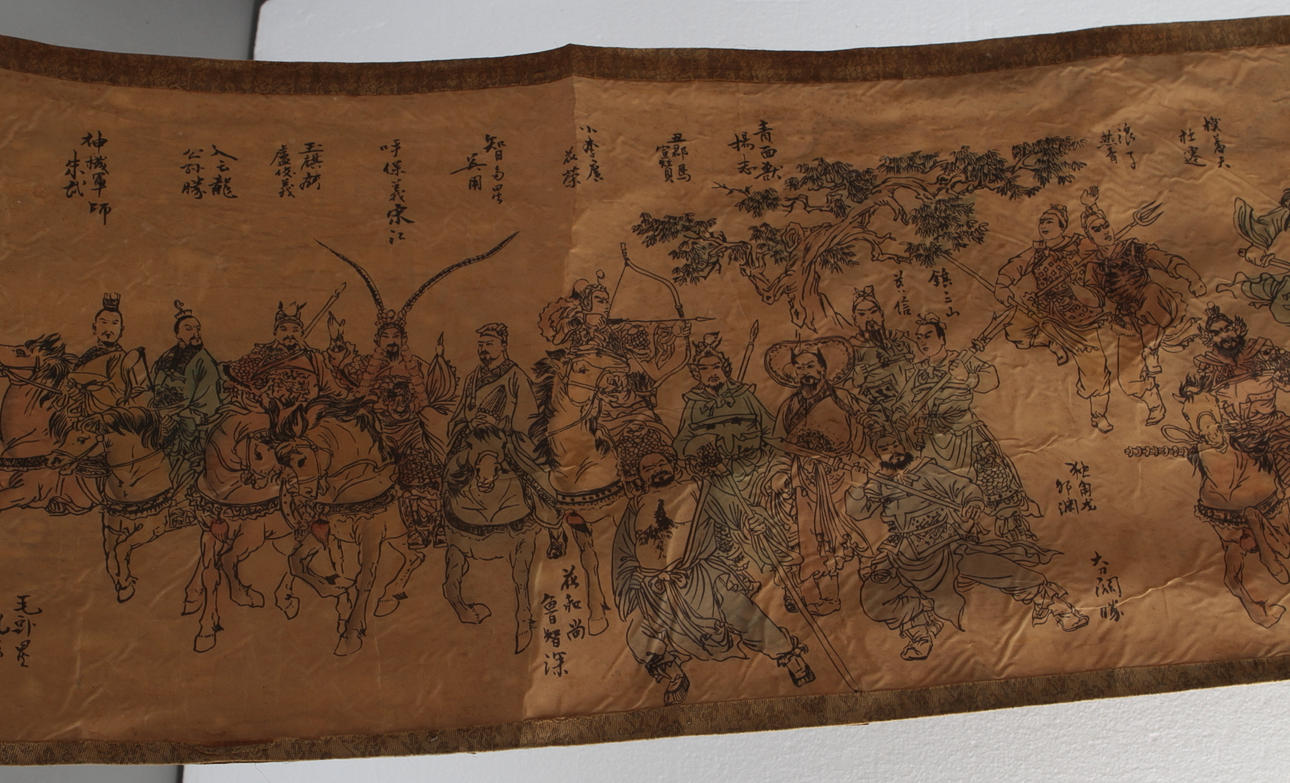 摸着天
杜遷
浪子
燕青
青面獸
楊志
丑郡馬
宣贊
小李廣
花榮
智多星
吳用
呼保義宋江
玉麒麟
盧俊義
入云龍
公孫勝
神機軍師
朱武
鎮三山
黃信
独角龙
鄒淵
大刀關勝
花和尚
魯智深
毛頭星